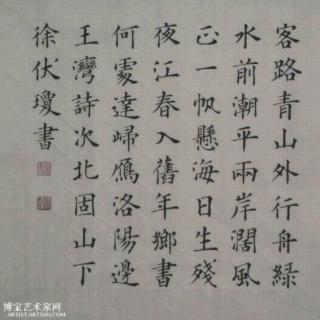 客路青山外行舟緑
水前潮平兩岸濶風
正一帆懸海日生殘
夜江春入舊年鄉書
何處達歸鴈洛陽邊
王灣詩次北固山下
徐伏瓊書
博宝艺术家网
ARTIST.ARTXUN.COM